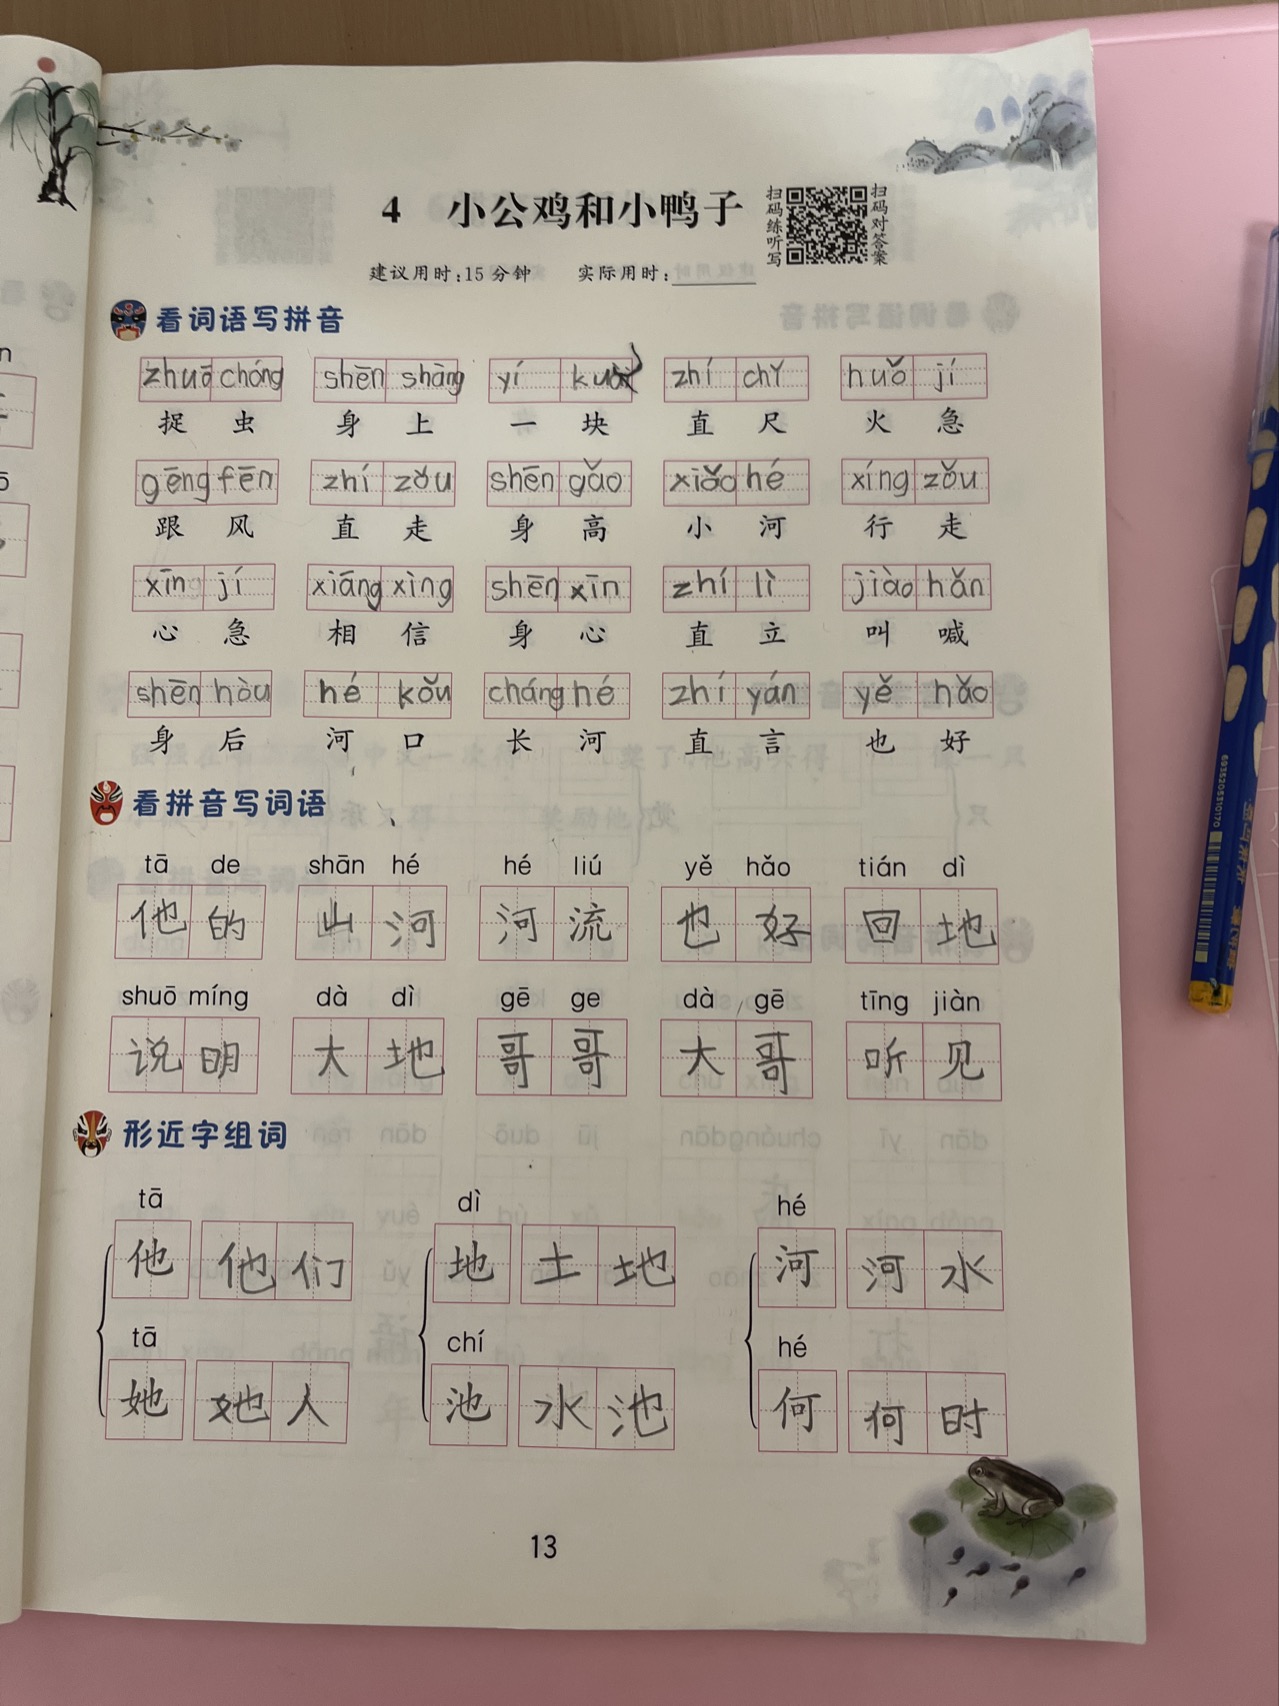 4 小公鸡和小鸭子
扫码练听写
扫码对答案
建议用时:15分钟 实际用时:
看词语写拼音
zhuō chóng shēn shàng yí kuài zhí chǐ huǒ jí
捉 虫 身 上 一 块 直 尺 火 急
gēng fēn zhí zǒu shēn gāo xiǎo hé xíng zǒu
跟 风 直 走 身 高 小 河 行 走
xīn jí xiāng xìng shēn xīn zhí lì jiào hǎn
心 急 相 信 身 心 直 立 叫 喊
shēn hòu hé kǒu cháng hé zhí yán yě hǎo
身 后 河 口 长 河 直 言 也 好
看拼音写词语
tā de shān hé hé liú yě hǎo tián dì
他 的 山 河 河 流 也 好 回 地
shuō míng dà dì gē ge dà gē tīng jiàn
说 明 大 地 哥 哥 大 哥 听 见
形近字组词
tā dì hé
他 他 们 地 土 地 河 河 水
tā chí hé
她 她 人 池 水 池 何 何 时
13
6935205310170